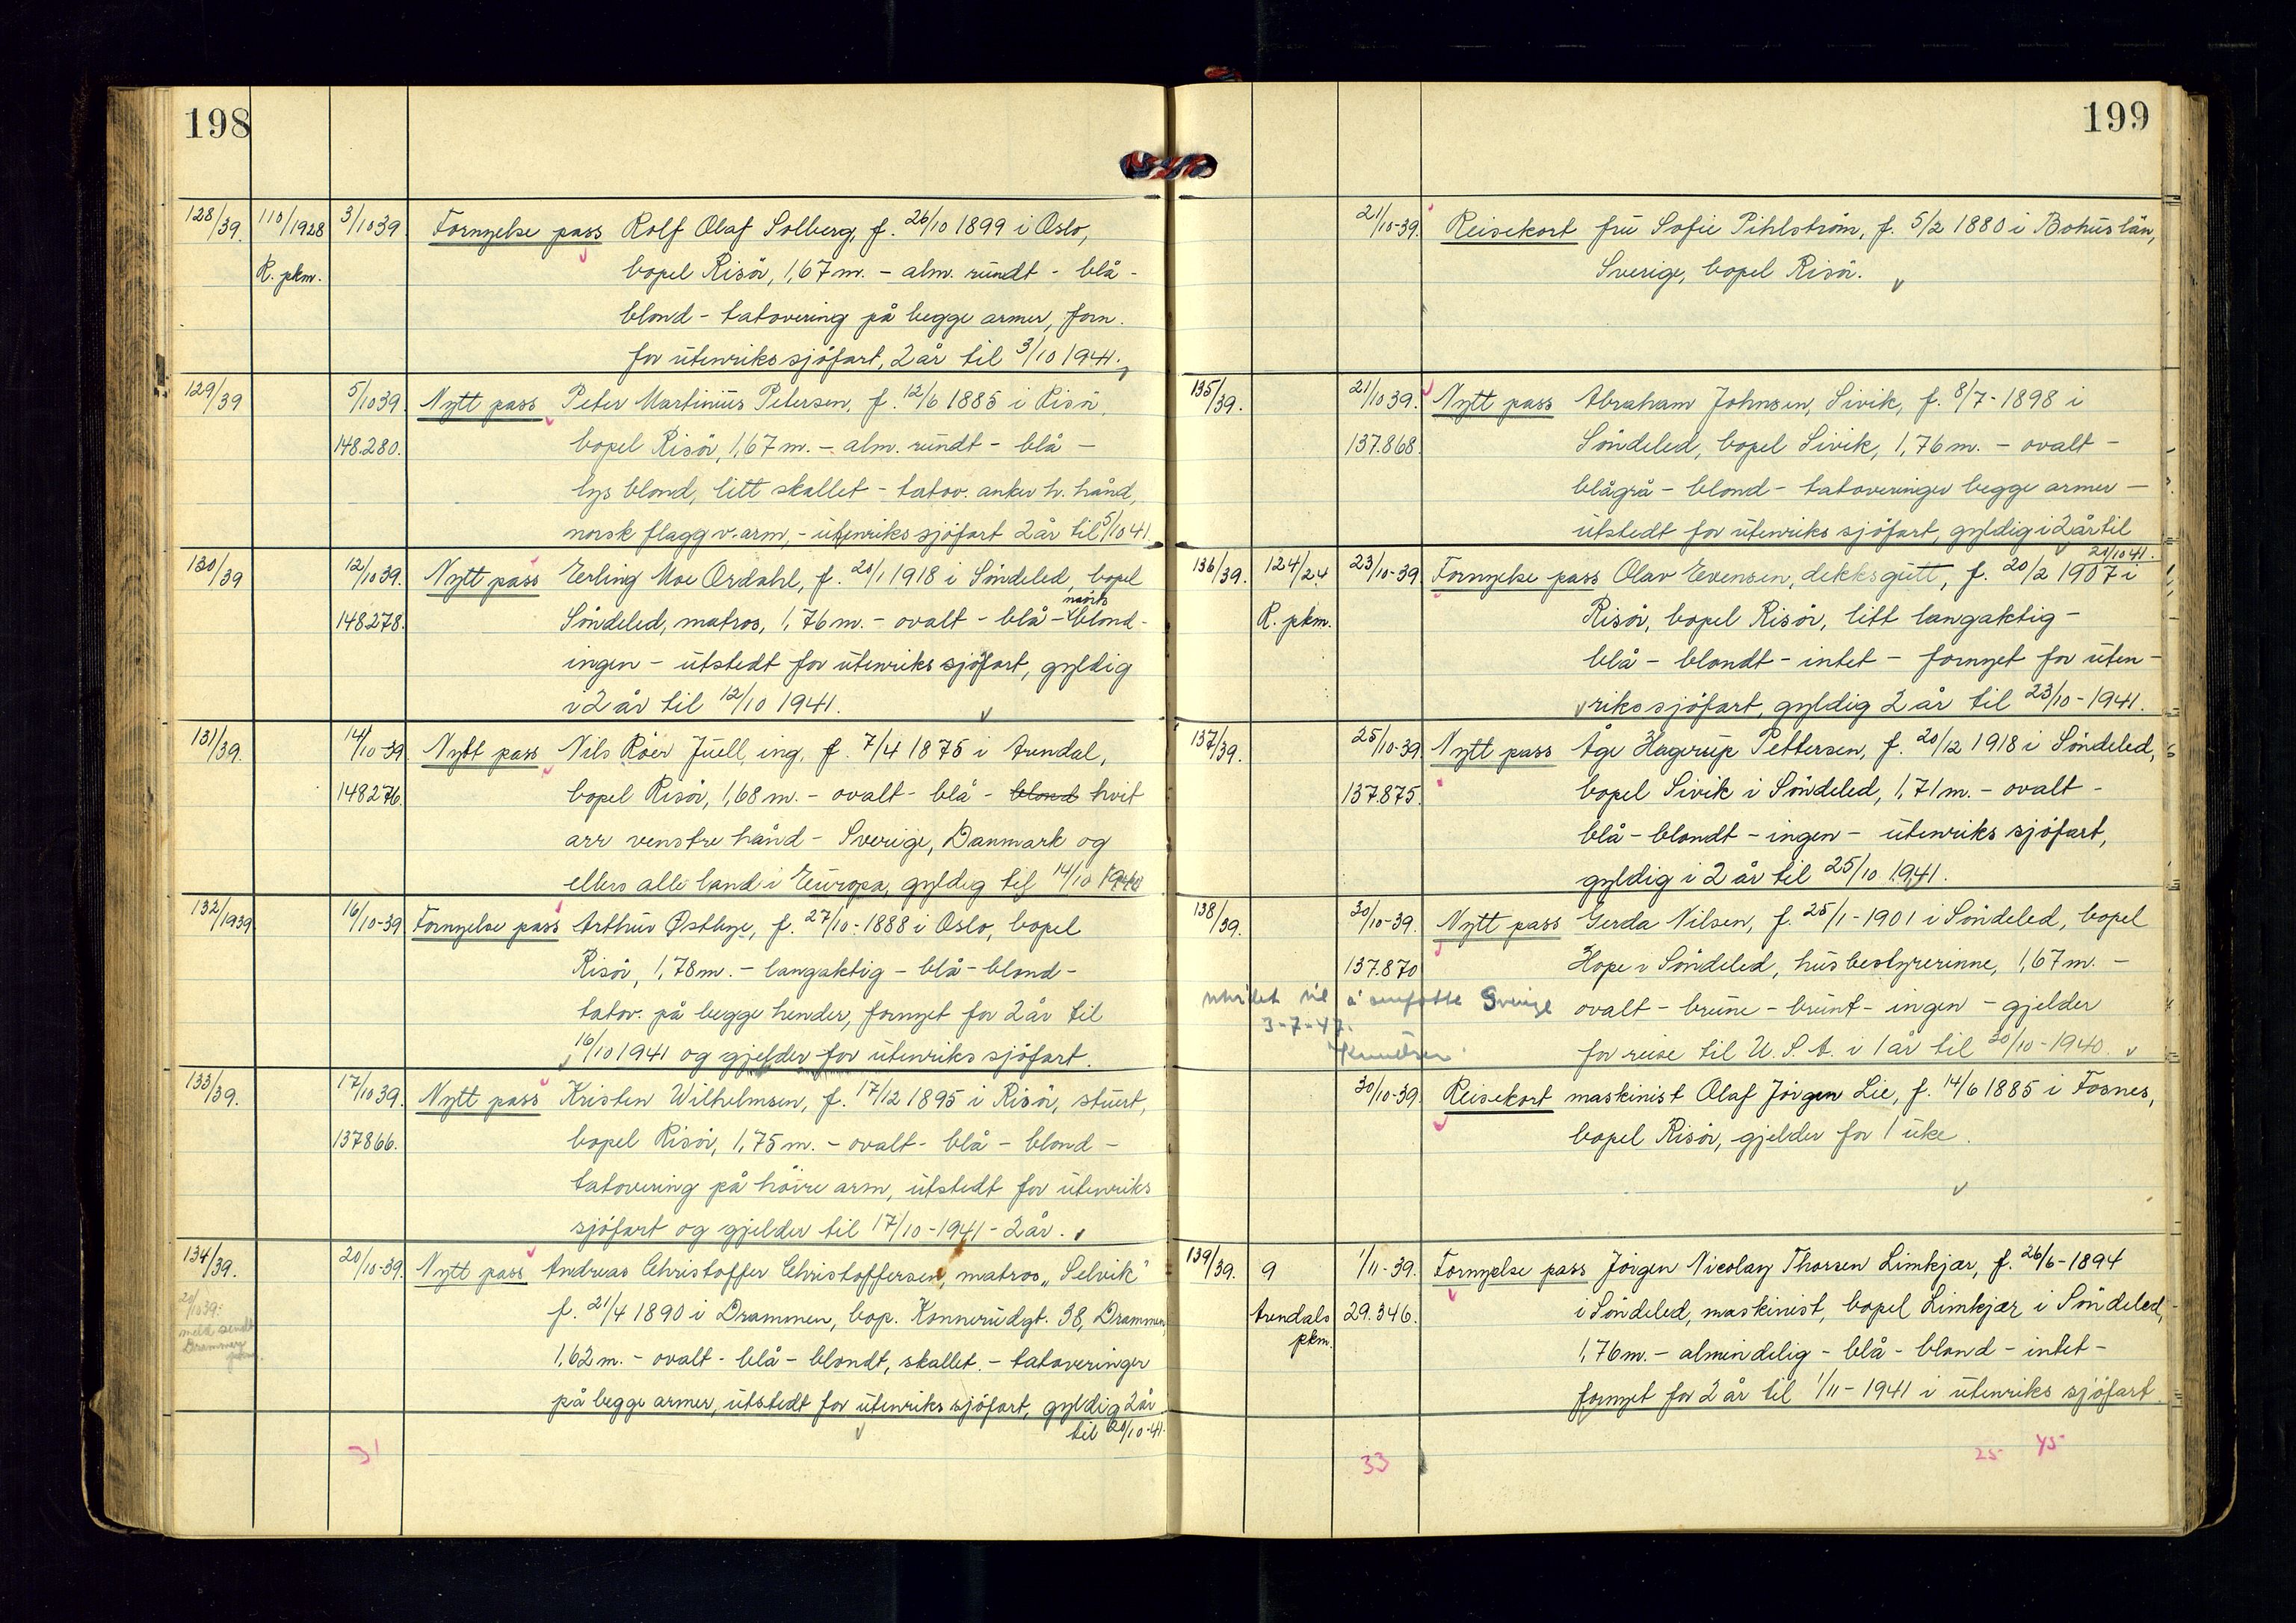 198
128/39. 110/1928 3/10 39 Fornyelse pass Rolf Olaf Solberg, f. 26/10 1899 i Oslo,
R. pkm. bopel Risör, 1,67 m. - alm. rundt - blå -
blond - tatovering på begge armer, forn.
for utenriks sjöfart, 2 år til 3/10 1941.
129/39 5/10 39. Nytt pass Peter Martinius Petersen, f. 12/6 1885 i Risör,
148.280. bopel Risör, 1,67 m. - alm. rundt - blå -
lys blond, litt skallet - tatov. anker h. hånd,
norsk flagg v. arm, - utenriks sjöfart 2 år til 5/10 41.
130/39 12/10 39. Nytt pass Erling Moe Ordahl, f. 20/1 1918 i Söndeled, bopel
148278. Söndeled, matros, 1,76 m. - ovalt - blå - mörk blond -
ingen - utstedt for utenriks sjöfart, gyldig
i 2 år til 12/10 1941.
131/39. 14/10-39 Nytt pass Nils Röer Juell, ing, f. 7/4 1875 i Arendal,
148276. bopel Risör, 1,68 m. - ovalt - blå - blond hvit
arr venstre hånd - Sverige, Danmark og
ellers alle land i Europa, gyldig til 14/10 1940
132/1939 16/10-39 Fornyelse pass Arthur Østbye, f. 27/10-1888 i Oslo, bopel
Risör, 1,78 m. - langaktig - blå - blond -
tatov. på begge hender, fornyet for 2 år til
16/10 1941 og gjelder for utenriks sjöfart.
133/39. 17/10 39. Nytt pass Kristen Wilhelmsen, f. 17/12 1895 i Risör, stuert,
137866. bopel Risör, 1,75 m. - ovalt - blå - blond -
tatovering på höire arm, utstedt for utenriks
sjöfart og gjelder til 17/10-1941 - 2 år.
134/39. 20/10-39. Nytt pass Andreas Christoffer Christoffersen, matros „Selvik"
20/10 39: f. 21/4 1890 i Drammen, bop. Konnerudgt. 38, Drammen,
meld. sendt 1,62 m. - ovalt - blå - blondt, skallet. - tatoveringer
Drammen pkm. på begge armer, utstedt for utenriks sjöfart, gyldig 2 år
til 20/10-41.
31
199
21/10-39. Reisekort fru Sofie Pihlström, f. 5/2 1880 i Bohuslän,
Sverige, bopel Risör.
135/39. 21/10 39. Nytt pass Abraham Johnsen, Sivik, f. 8/7-1898 i
137.868. Söndeled, bopel Sivik, 1,76 m. - ovalt -
blågrå - blond - tatoveringer begge armer -
utstedt for utenriks sjöfart, gyldig i 2 år til
21/10 41.
136/39. 124/24 23/10-39 Fornyelse pass Olav Evensen, dekksgutt, f. 20/2 1907 i
R. pkm. Risör, bopel Risör, litt langaktig -
blå - blondt - intet - fornyet for uten-
riks sjöfart, gyldig 2 år til 23/10-1941.
137/39. 25/10-39 Nytt pass Åge Hagerup Pettersen, f. 20/12 1918 i Söndeled,
137.875. bopel Sivik i Söndeled, 1,71 m. - ovalt -
blå - blondt - ingen - utenriks sjöfart,
gyldig i 2 år til 25/10 1941.
138/39. 30/10-39. Nytt pass Gerda Nilsen, f. 25/1-1901 i Söndeled, bopel
137.870 Hope i Söndeled, husbestyrerinne, 1,67 m. -
utvidet til å omfatte Sverige ovalt - brune - brunt - ingen - gjelder
3-7-47.
Knudsen for reise til U. S. A. i 1 år til 30/10-1940.
30/10-39. Reisekort maskinist Olaf Jörgen Lie, f. 14/6 1885 i Fosnes,
bopel Risör, gjelder for 1 uke.
139/39. 9 1/11-39. Fornyelse pass Jörgen Nicolay Thorsen Limkjær, f. 26/6-1894
Arendals 29.346. i Söndeled, maskinist, bopel Limkjær i Söndeled,
pkm. 1,76 m. - almindelig - blå - blond - intet -
fornyet for 2 år til 1/11-1941 i utenriks sjöfart.
33 25 45